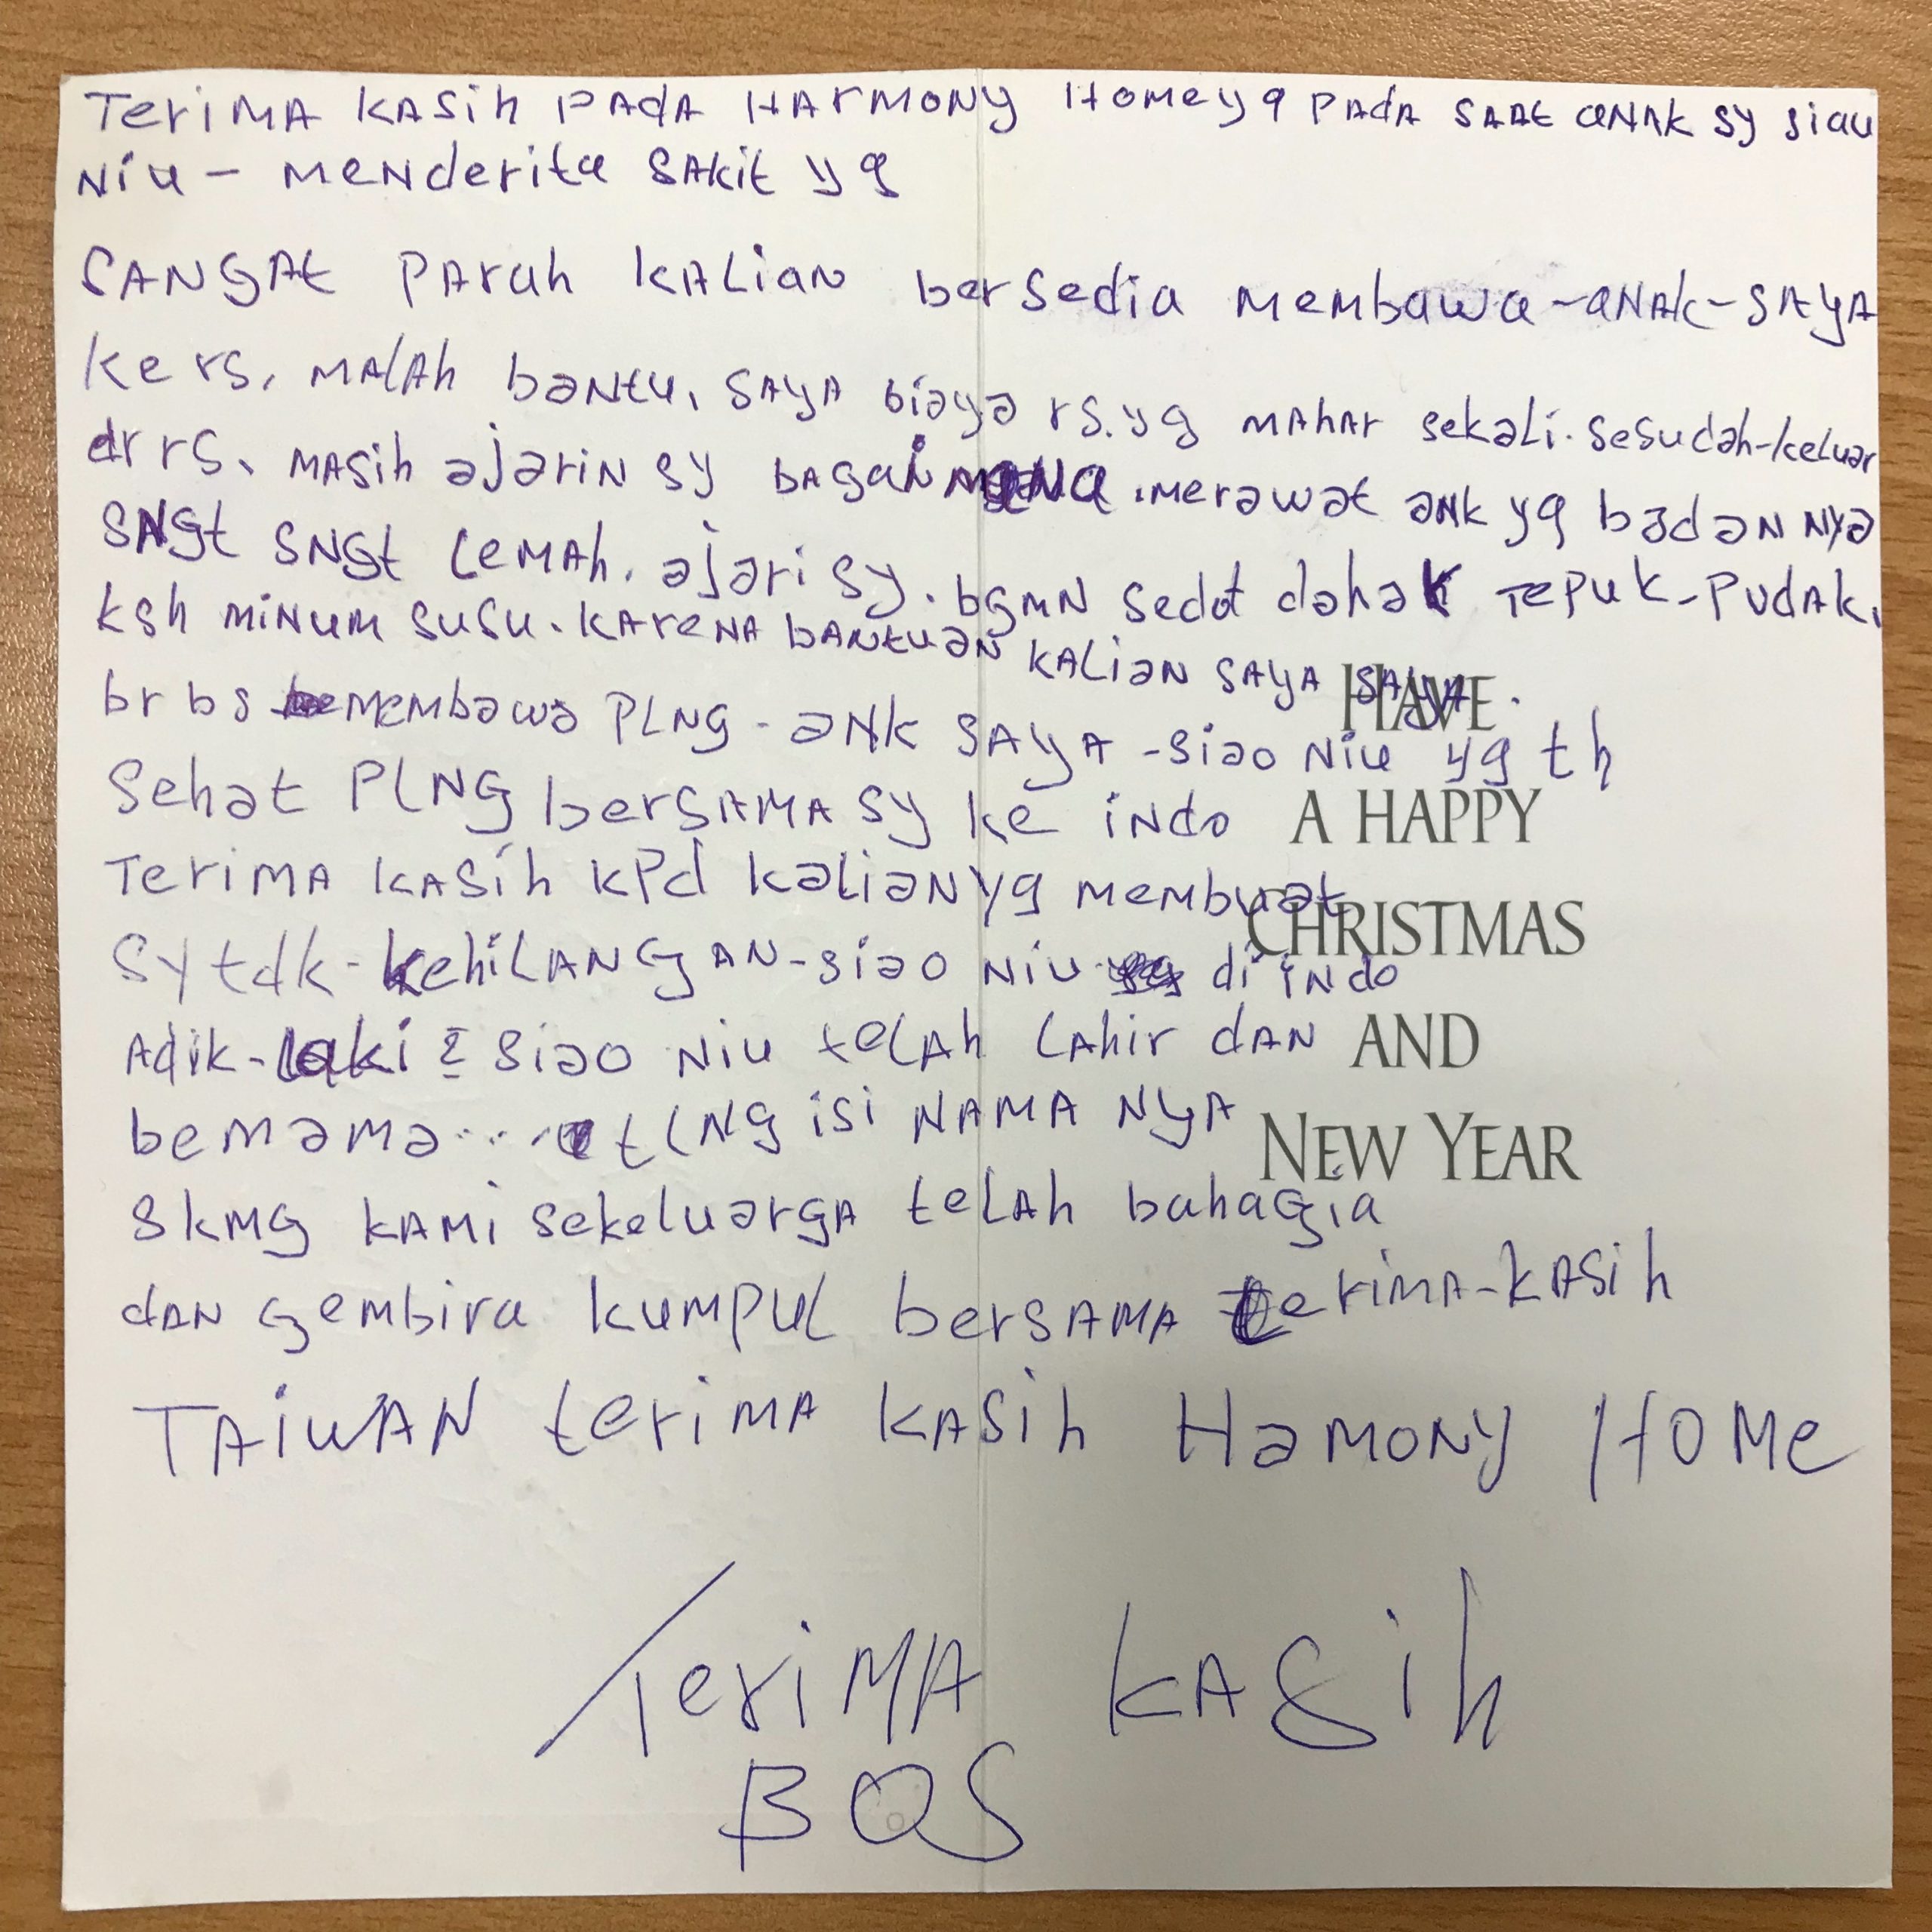 Terima kasih pada Harmony Home yg pada saat anak sy siau
niu - menderita sakit yg
sangat parah kalian bersedia membawa - anak - saya
ke rs, malah bantu, saya biaya rs. yg mahar sekali. sesudah - keluar
dr rs, masih ajarin sy bagaimana merawat ank yg badan nya
sngt sngt lemah. ajari sy. bgmn sedot dahak tepuk - pudak,
ksh minum susu. karena bantuan kalian saya saya.
br bs membawa plng - ank saya - siao niu yg th
sehat plng bersama sy ke indo
Terima kasih kpd kalian yg membuat
sy tdk - kehilangan - siao niu di indo
Adik - laki2 siao niu telah lahir dan
bemama... tlng isi nama nya
skmg kami sekeluarga telah bahagia
dan gembira kumpul bersama terima - kasih
Taiwan terima kasih Hamony Home
Terima kasih
BOS
HAVE
A HAPPY
CHRISTMAS
AND
NEW YEAR